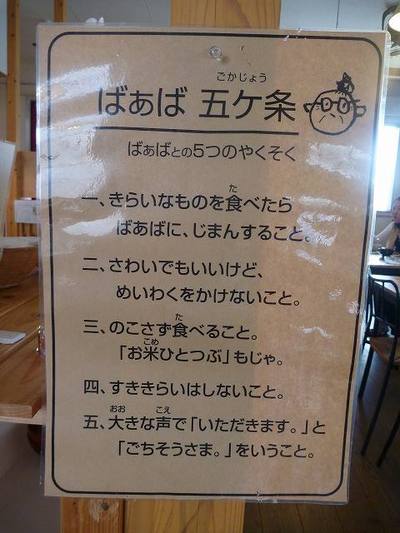 ごかじょう
ばぁば 五ケ条
ばぁばとの5つのやくそく
一、きらいなものを食べたら
た
ばぁばに、じまんすること。
二、さわいでもいいけど、
めいわくをかけないこと。
三、のこさず食べること。
た
「お米ひとつぶ」もじゃ。
こめ
四、すききらいはしないこと。
五、大きな声で「いただきます。」と
おお こえ
「ごちそうさま。」をいうこと。